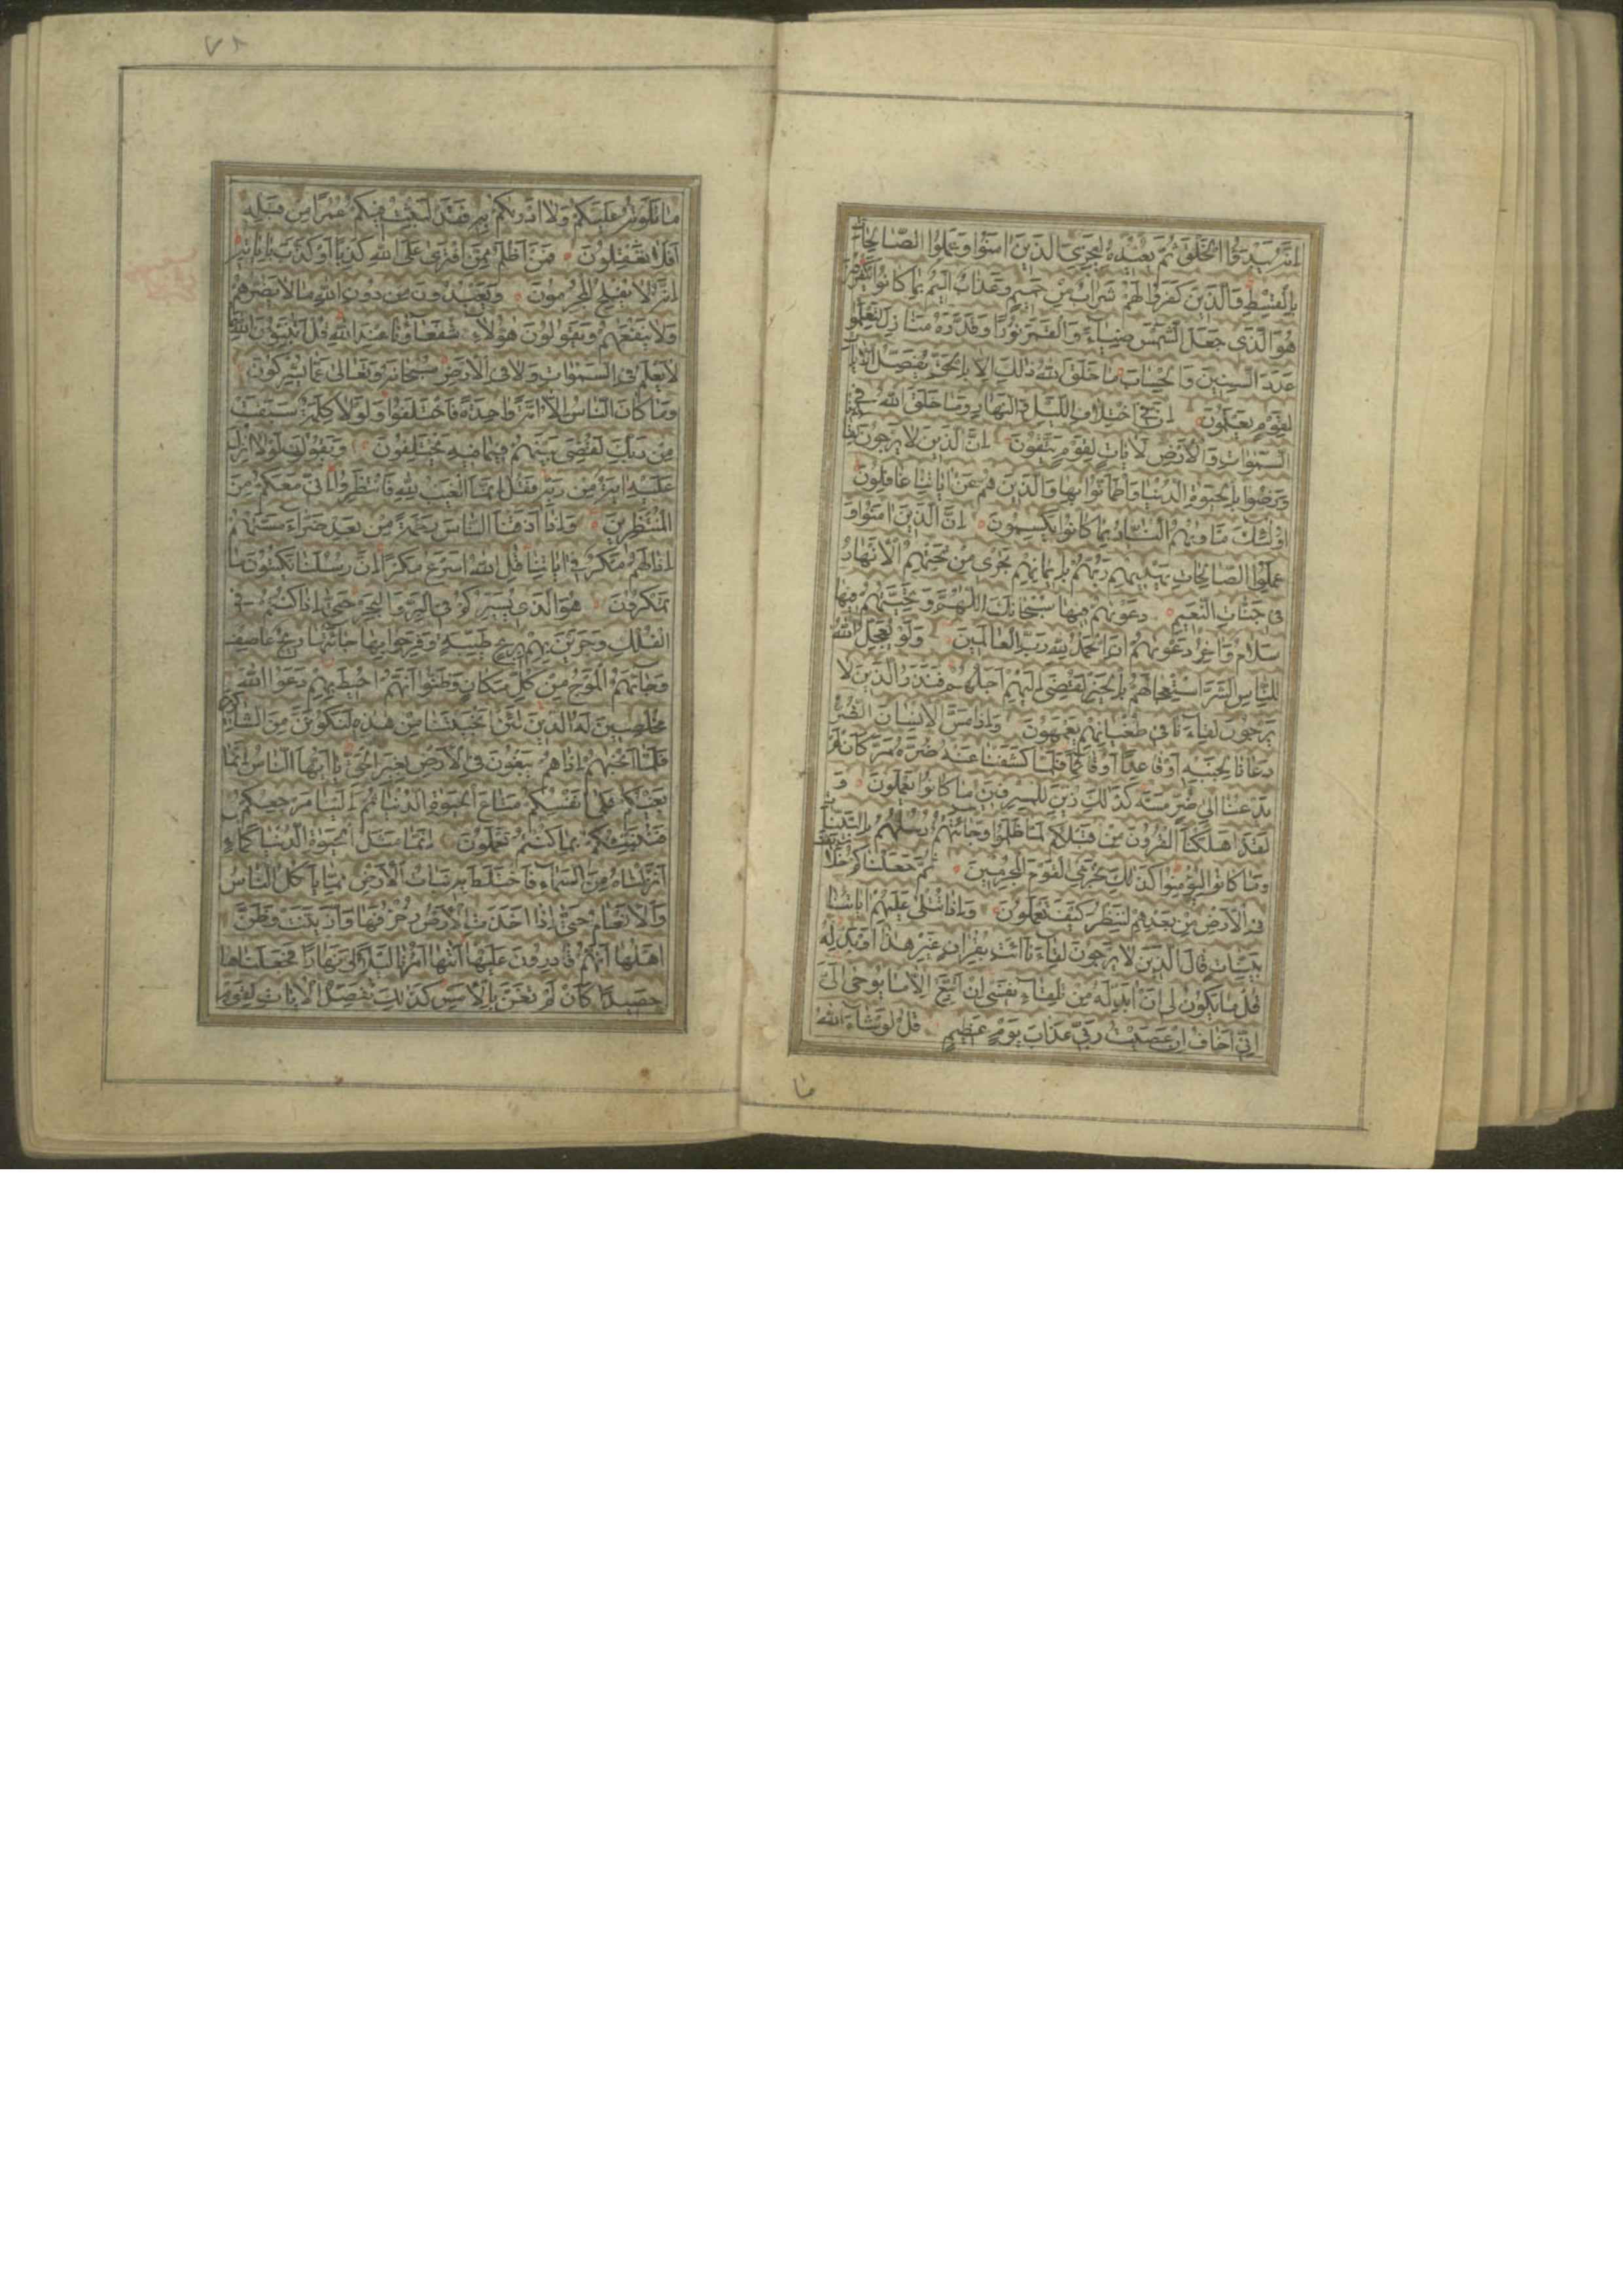 اِنَّهُ يَبْدَؤُا الْخَلْقَ ثُمَّ يُعيدُهُ لِيَجْزِىَ الَّذينَ اٰمَنُوا وَعَمِلُوا الصَّالِحَاتِ
بِالْقِسْطِ وَالَّذينَ كَفَرُوا لَهُمْ شَرَابٌ مِنْ حَميمٍ وَعَذَابٌ اَليمٌ بِمَا كَانُوا يَكْفُرُونَ
هُوَ الَّذى جَعَلَ الشَّمْسَ ضِيَاءً وَالْقَمَرَ نُورًا وَقَدَّرَهُ مَنَازِلَ لِتَعْلَمُوا
عَدَدَ السِّنينَ وَالْحِسَابَ مَا خَلَقَ اللّٰهُ ذٰلِكَ اِلَّا بِالْحَقِّ يُفَصِّلُ الْاٰيَاتِ
لِقَوْمٍ يَعْلَمُونَ اِنَّ فِى اخْتِلَافِ اللَّيْلِ وَالنَّهَارِ وَمَا خَلَقَ اللّٰهُ فِى
السَّمٰوَاتِ وَالْاَرْضِ لَاٰيَاتٍ لِقَوْمٍ يَتَّقُونَ اِنَّ الَّذينَ لَا يَرْجُونَ لِقَاءَنَا
وَرَضُوا بِالْحَيٰوةِ الدُّنْيَا وَاطْمَاَنُّوا بِهَا وَالَّذينَ هُمْ عَنْ اٰيَاتِنَا غَافِلُونَ
اُولٰئِكَ مَأْوٰيهُمُ النَّارُ بِمَا كَانُوا يَكْسِبُونَ اِنَّ الَّذينَ اٰمَنُوا وَ
عَمِلُوا الصَّالِحَاتِ يَهْديهِمْ رَبُّهُمْ بِايمَانِهِمْ تَجْرى مِنْ تَحْتِهِمُ الْاَنْهَارُ
فى جَنَّاتِ النَّعيمِ دَعْوٰيهُمْ فيهَا سُبْحَانَكَ اللّٰهُمَّ وَتَحِيَّتُهُمْ فيهَا
سَلَامٌ وَاٰخِرُ دَعْوٰيهُمْ اَنِ الْحَمْدُ لِلّٰهِ رَبِّ الْعَالَمينَ وَلَوْ يُعَجِّلُ اللّٰهُ
لِلنَّاسِ الشَّرَّ اسْتِعْجَالَهُمْ بِالْخَيْرِ لَقُضِىَ اِلَيْهِمْ اَجَلُهُمْ فَنَذَرُ الَّذينَ لَا
يَرْجُونَ لِقَاءَنَا فى طُغْيَانِهِمْ يَعْمَهُونَ وَاِذَا مَسَّ الْاِنْسَانَ الضُّرُّ
دَعَانَا لِجَنْبِهِ اَوْ قَاعِدًا اَوْ قَائِمًا فَلَمَّا كَشَفْنَا عَنْهُ ضُرَّهُ مَرَّ كَاَنْ لَمْ
يَدْعُنَا اِلٰى ضُرٍّ مَسَّهُ كَذٰلِكَ زُيِّنَ لِلْمُسْرِفينَ مَا كَانُوا يَعْمَلُونَ وَ
لَقَدْ اَهْلَكْنَا الْقُرُونَ مِنْ قَبْلِكُمْ لَمَّا ظَلَمُوا وَجَائَتْهُمْ رُسُلُهُمْ بِالْبَيِّنَاتِ
وَمَا كَانُوا لِيُؤْمِنُوا كَذٰلِكَ نَجْزِى الْقَوْمَ الْمُجْرِمينَ ثُمَّ جَعَلْنَاكُمْ خَلَائِفَ
فِى الْاَرْضِ مِنْ بَعْدِهِمْ لِنَنْظُرَ كَيْفَ تَعْمَلُونَ وَاِذَا تُتْلٰى عَلَيْهِمْ اٰيَاتُنَا
بَيِّنَاتٍ قَالَ الَّذينَ لَا يَرْجُونَ لِقَاءَنَا ائْتِ بِقُرْاٰنٍ غَيْرِ هٰذَا اَوْ بَدِّلْهُ
قُلْ مَا يَكُونُ لى اَنْ اُبَدِّلَهُ مِنْ تِلْقَاءِ نَفْسى اِنْ اَتَّبِعُ اِلَّا مَا يُوحٰى اِلَىَّ
اِنّى اَخَافُ اِنْ عَصَيْتُ رَبّى عَذَابَ يَوْمٍ عَظيمٍ قُلْ لَوْ شَاءَ اللّٰهُ
مَا
٧٨
مَا تَلَوْتُهُ عَلَيْكُمْ وَلَا اَدْرٰيكُمْ بِهِ فَقَدْ لَبِثْتُ فيكُمْ عُمُرًا مِنْ قَبْلِهِ
اَفَلَا تَعْقِلُونَ فَمَنْ اَظْلَمُ مِمَّنِ افْتَرٰى عَلَى اللّٰهِ كَذِبًا اَوْ كَذَّبَ بِاٰيَاتِهِ
اِنَّهُ لَا يُفْلِحُ الْمُجْرِمُونَ وَيَعْبُدُونَ مِنْ دُونِ اللّٰهِ مَا لَا يَضُرُّهُمْ
وَلَا يَنْفَعُهُمْ وَيَقُولُونَ هٰؤُلَاءِ شُفَعَاؤُنَا عِنْدَ اللّٰهِ قُلْ اَتُنَبِّؤُنَ اللّٰهَ بِمَا
لَا يَعْلَمُ فِى السَّمٰوَاتِ وَلَا فِى الْاَرْضِ سُبْحَانَهُ وَتَعَالٰى عَمَّا يُشْرِكُونَ
وَمَا كَانَ النَّاسُ اِلَّا اُمَّةً وَاحِدَةً فَاخْتَلَفُوا وَلَوْلَا كَلِمَةٌ سَبَقَتْ
مِنْ رَبِّكَ لَقُضِىَ بَيْنَهُمْ فيمَا فيهِ يَخْتَلِفُونَ وَيَقُولُونَ لَوْلَا اُنْزِلَ
عَلَيْهِ اٰيَةٌ مِنْ رَبِّهِ فَقُلْ اِنَّمَا الْغَيْبُ لِلّٰهِ فَانْتَظِرُوا اِنّى مَعَكُمْ مِنَ
الْمُنْتَظِرينَ وَاِذَا اَذَقْنَا النَّاسَ رَحْمَةً مِنْ بَعْدِ ضَرَّاءَ مَسَّتْهُمْ
اِذَا لَهُمْ مَكْرٌ فى اٰيَاتِنَا قُلِ اللّٰهُ اَسْرَعُ مَكْرًا اِنَّ رُسُلَنَا يَكْتُبُونَ مَا
تَمْكُرُونَ هُوَ الَّذى يُسَيِّرُكُمْ فِى الْبَرِّ وَالْبَحْرِ حَتّٰى اِذَا كُنْتُمْ فِى
الْفُلْكِ وَجَرَيْنَ بِهِمْ بِريحٍ طَيِّبَةٍ وَفَرِحُوا بِهَا جَائَتْهَا ريحٌ عَاصِفٌ
وَجَائَهُمُ الْمَوْجُ مِنْ كُلِّ مَكَانٍ وَظَنُّوا اَنَّهُمْ اُحيطَ بِهِمْ دَعَوُا اللّٰهَ
مُخْلِصينَ لَهُ الدّينَ لَئِنْ اَنْجَيْتَنَا مِنْ هٰذِهِ لَنَكُونَنَّ مِنَ الشَّاكِرينَ
فَلَمَّا اَنْجٰيهُمْ اِذَا هُمْ يَبْغُونَ فِى الْاَرْضِ بِغَيْرِ الْحَقِّ يَا اَيُّهَا النَّاسُ اِنَّمَا
بَغْيُكُمْ عَلٰى اَنْفُسِكُمْ مَتَاعَ الْحَيٰوةِ الدُّنْيَا ثُمَّ اِلَيْنَا مَرْجِعُكُمْ
فَنُنَبِّئُكُمْ بِمَا كُنْتُمْ تَعْمَلُونَ اِنَّمَا مَثَلُ الْحَيٰوةِ الدُّنْيَا كَمَاءٍ
اَنْزَلْنَاهُ مِنَ السَّمَاءِ فَاخْتَلَطَ بِهِ نَبَاتُ الْاَرْضِ مِمَّا يَأْكُلُ النَّاسُ
وَالْاَنْعَامُ حَتّٰى اِذَا اَخَذَتِ الْاَرْضُ زُخْرُفَهَا وَازَّيَّنَتْ وَظَنَّ
اَهْلُهَا اَنَّهُمْ قَادِرُونَ عَلَيْهَا اَتٰيهَا اَمْرُنَا لَيْلًا اَوْ نَهَارًا فَجَعَلْنَاهَا
حَصيدًا كَاَنْ لَمْ تَغْنَ بِالْاَمْسِ كَذٰلِكَ نُفَصِّلُ الْاٰيَاتِ لِقَوْمٍ